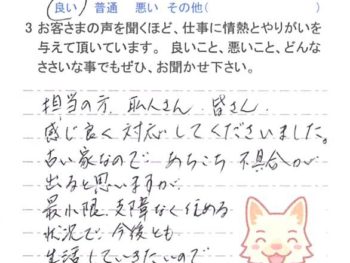 良い 普通 悪い その他( )
3 お客さまの声を聞くほど、仕事に情熱とやりがいを
与えて頂いています。 良いこと、悪いこと、どんな
ささいな事でもぜひ、お聞かせ下さい。
担当の方、職人さん、皆さん
感じ良く対応してくださいました。
古い家なので、あちこち不具合が
出ると思いますが、
最小限、支障なく住める
状況で、今後とも
生活していきたいので